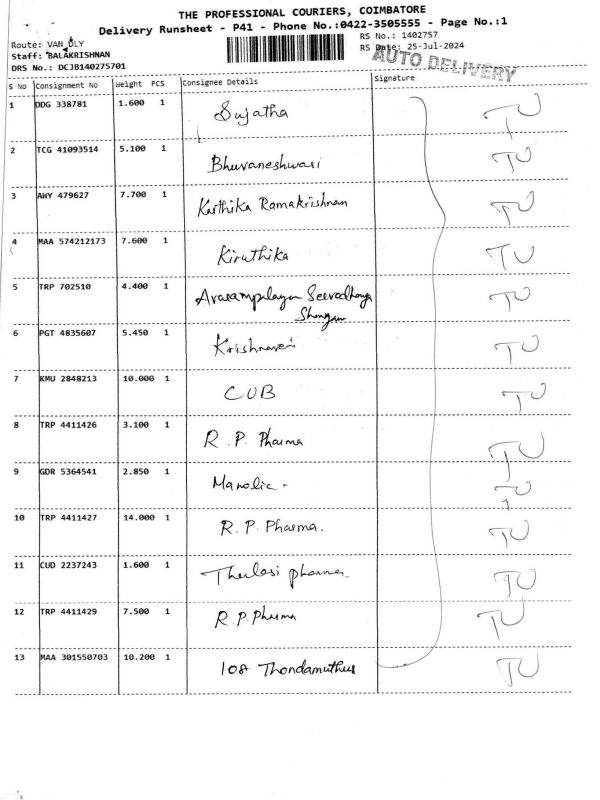 THE PROFESSIONAL COURIERS, COIMBATORE
Delivery Runsheet - P41 - Phone No.:0422-3505555 - Page No.:1
Route: VAN DLY
RS No.: 1402757
Staff: BALAKRISHNAN
RS Date: 25-Jul-2024
DRS No.: DCJB140275701
AUTO DELIVERY
S No Consignment No Weight PCS Consignee Details Signature
1 DDG 338781 1.600 1 Sujatha TU
2 TCG 41093514 5.100 1 Bhuvaneshwari TU
3 AWY 479627 7.700 1 Karthika Ramakrishnan TU
4 MAA 574212173 7.600 1 Kiruthika TU
5 TRP 702510 4.400 1 TU
6 PGT 4835607 5.450 1 Krishnaveni TU
7 KMU 2848213 10.000 1 CUB TU
8 TRP 4411426 3.100 1 R.P. Pharma TU
9 GDR 5364541 2.850 1 TU
10 TRP 4411427 14.000 1 R.P. Pharma. TU
11 CUD 2237243 1.600 1 Thulasi pharma TU
12 TRP 4411429 7.500 1 R.P. Pharma TU
13 MAA 301550703 10.200 1 108 Thondamuthur TU